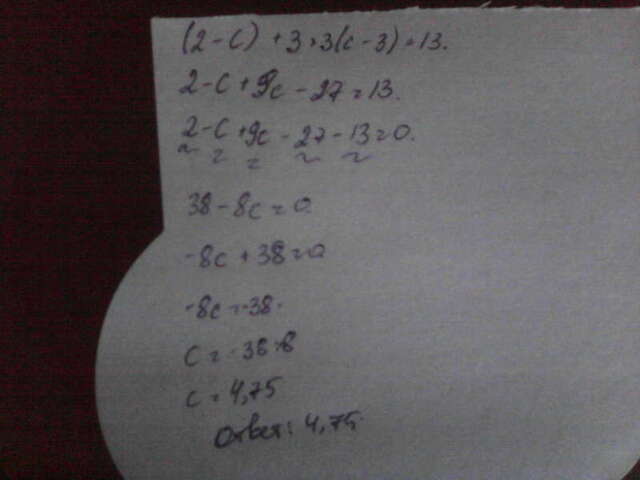 (2-c) + 3·3(c-3)=13.
2-c+9c-27=13.
2-c+9c-27-13=0.
38-8c=0
-8c+38=0
-8c=-38.
c=-38:8
c=4,75
Ответ: 4,75.